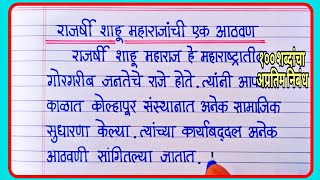 राजर्षी शाहू महाराजांची एक आठवण
राजर्षी शाहू महाराज हे महाराष्ट्राती
गोरगरीब जनतेचे राजे होते. त्यांनी आप
काळात कोल्हापूर संस्थानात अनेक सामाजिक
सुधारणा केल्या. त्यांच्या कार्याबद्दल अनेक
आठवणी सांगितल्या जातात.
१०० शब्दांचा
अप्रतिम निबंध